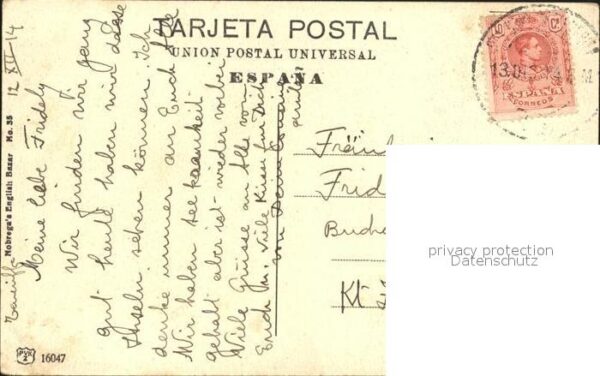 TARJETA POSTAL
UNION POSTAL UNIVERSAL
ESPAÑA
Nobrega's English Bazar No. 35
16047
ESPAÑA
CORREOS
12 XII 14
Meine liebe Fridely
Wir finden wir ganz
gut heute haben wir
Inseln sehen können. Ich
denke immer an Euch
Wir haben seekrankheit
gehabt aber ist wieder vorbei
Viele Grüsse an Alle von
Erich Viele Küsse für Dich
von
Fräu
Frid
Buch
Kt
privacy protection
Datenschutz